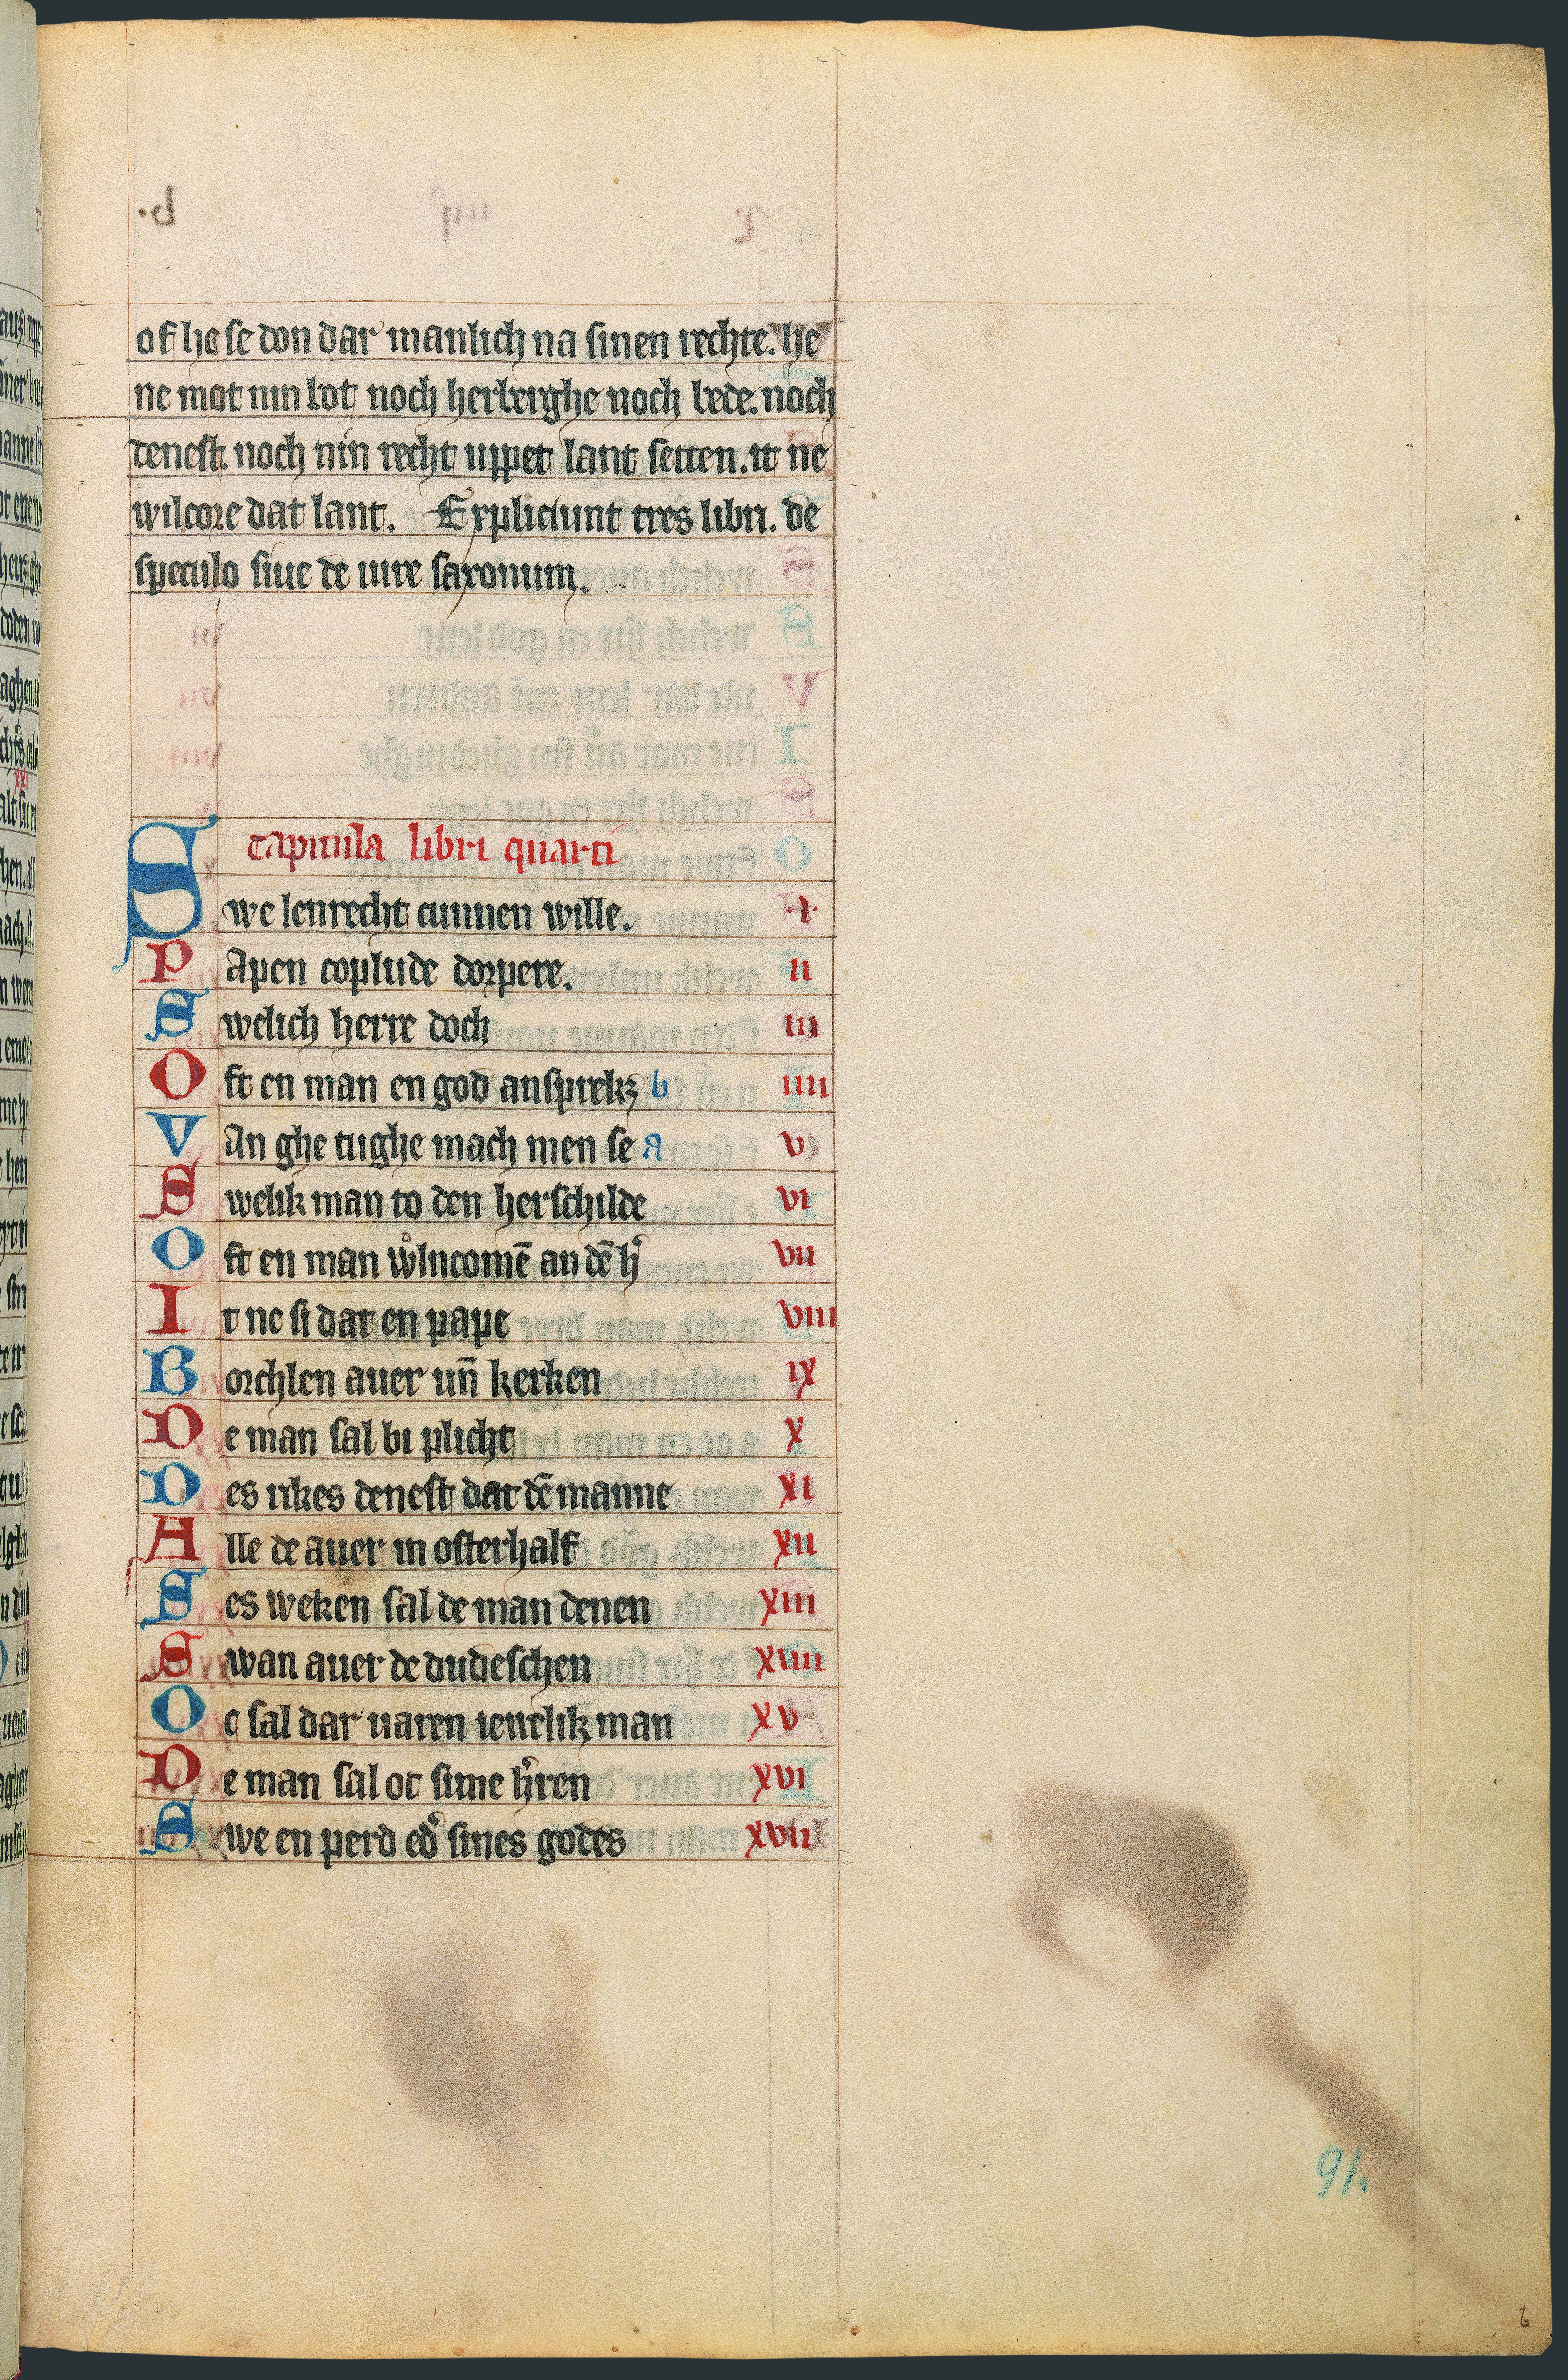 of he se don dar manlich na sinen rechte. he
ne mot nin bot noch herberghe noch bede. noch
denest. noch nin recht uppet lant setten. it ne
wilcore dat lant. Expliciunt tres libri. de
speculo siue de iure saxonum.
capitula libri quarti
Swe lenrecht cunnen wille. .i.
Papen coplude dorpere. ii
Swelich herre doch iii
Oft en man en god ansprekꝫ b iiii
Van ghe tughe mach men se a v
Swelik man to den herschilde vi
Oft en man vͦlncomē an dē hͬ vii
It ne si dat en pape viii
Borchlen auer un̄ kerken ix
De man sal bi plicht x
Des rikes denest dat dē manne xi
Alle de auer in osterhalf xii
Ses weken sal de man denen xiii
Swan auer de dudeschen xiiii
Oc sal dar uaren iewelik man xv
De man sal oc sime hͬren xvi
Swe en perd edͬ sines godes xvii
91.